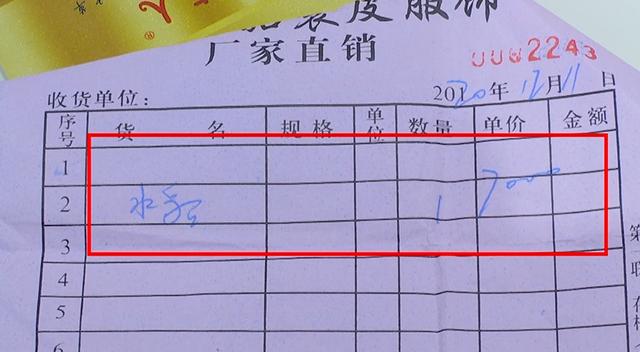 裘皮服饰
厂家直销
0002243
收货单位：
2020年12月11日
序号 货名 规格 单位 数量 单价 金额
1
2 水貂 1 7000
3
4
5
6